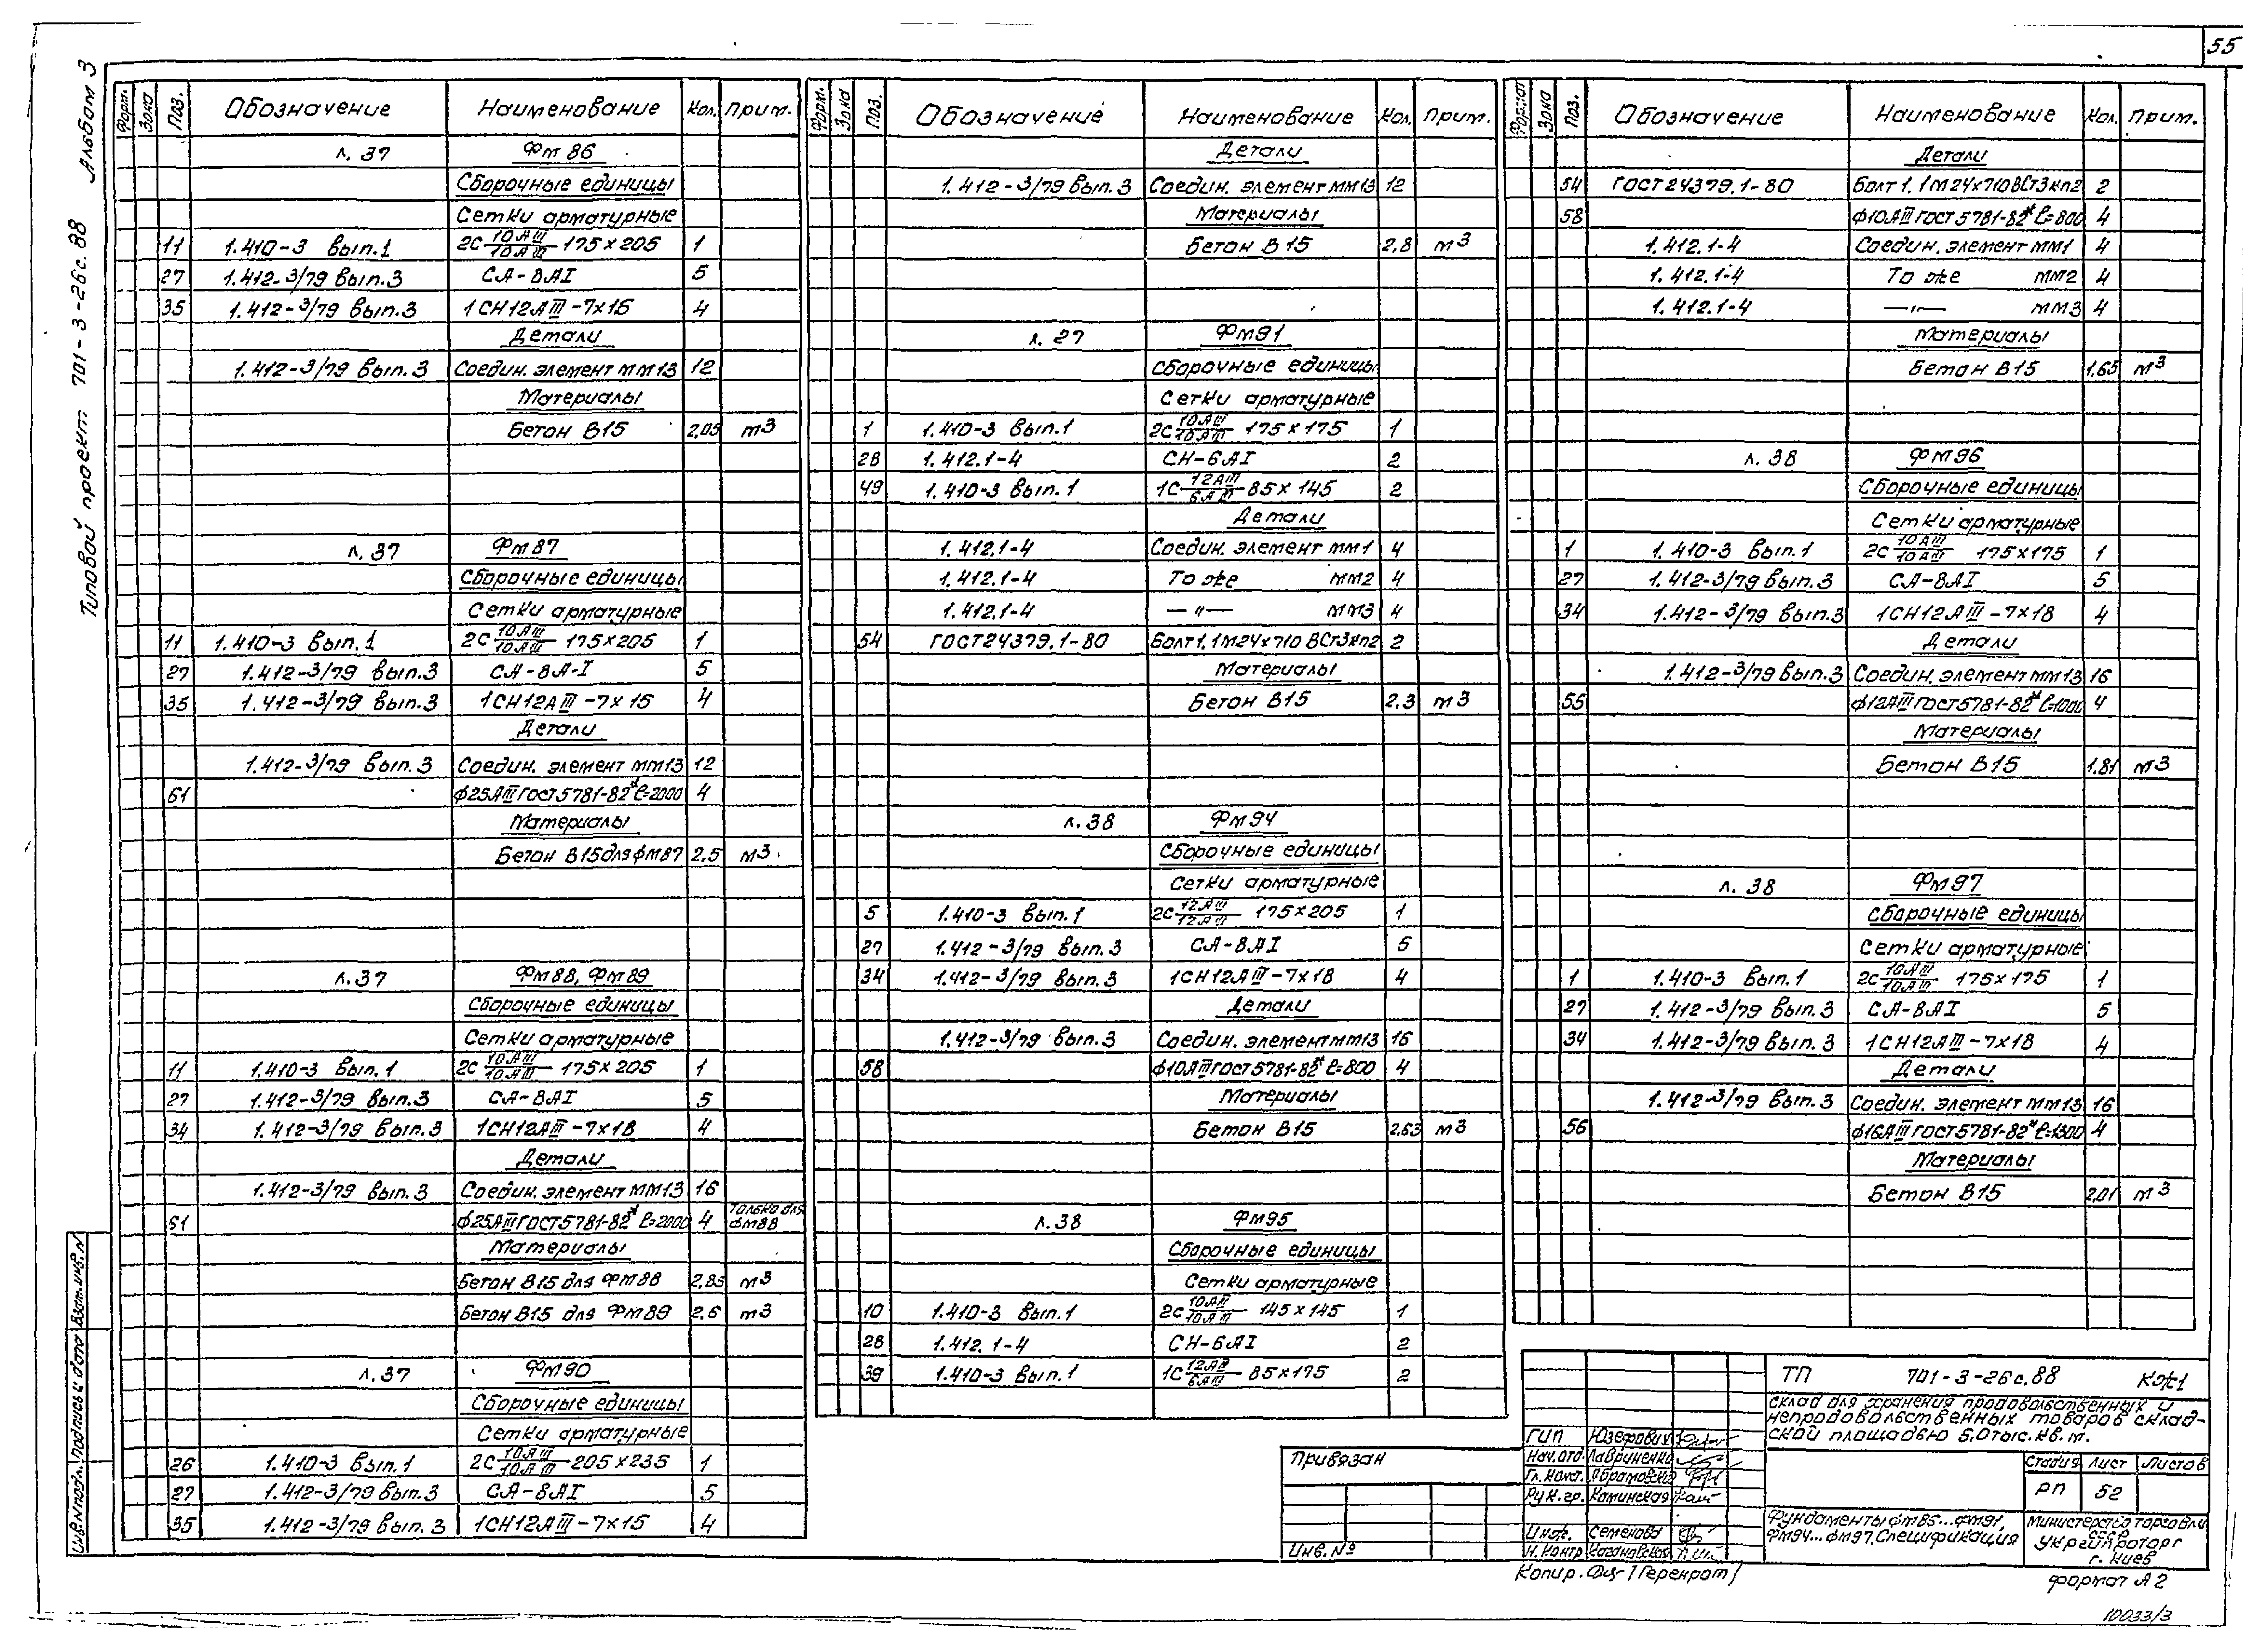 55
Альбом 3
Типовой проект 701-3-26с.88
Форм. Зона Поз. Обозначение Наименование Кол. Прим.
л. 37 Фм 86
Сборочные единицы
Сетки арматурные
11 1.410-3 вып.1 2С 10АIII/10АIII 175×205 1
27 1.412-3/79 вып.3 СА-8АI 5
35 1.412-3/79 вып.3 1СН12АIII-7×15 4
Детали
1.412-3/79 вып.3 Соедин. элемент мм13 12
Материалы
Бетон В15 2,05 м3
л. 37 Фм87
Сборочные единицы
Сетки арматурные
11 1.410-3 вып.1 2С 10АIII/10АIII 175×205 1
27 1.412-3/79 вып.3 СА-8А-I 5
35 1.412-3/79 вып.3 1СН12АIII-7×15 4
Детали
1.412-3/79 вып.3 Соедин. элемент мм13 12
61 ф25АIII ГОСТ5781-82* ℓ=2000 4
Материалы
Бетон В15 для фм87 2,5 м3
л.37 Фм88, Фм89
Сборочные единицы
Сетки арматурные
11 1.410-3 вып.1 2С 10АIII/10АIII 175×205 1
27 1.412-3/79 вып.3 СА-8АI 5
34 1.412-3/79 вып.3 1СН12АIII-7×18 4
Детали
1.412-3/79 вып.3 Соедин. элемент мм13 16
61 ф25АIII ГОСТ5781-82* ℓ=2000 4 только для фм88
Материалы
Бетон В15 для Фм88 2,85 м3
Бетон В15 для Фм89 2,6 м3
л.37 Фм90
Сборочные единицы
Сетки арматурные
26 1.410-3 вып.1 2С 10АIII/10АIII 205×235 1
27 1.412-3/79 вып.3 СА-8АI 5
35 1.412-3/79 вып.3 1СН12АIII-7×15 4
Форм. Зона Поз. Обозначение Наименование Кол. Прим.
Детали
1.412-3/79 вып.3 Соедин. элемент мм13 12
Материалы
Бетон В15 2,8 м3
л. 27 Фм91
Сборочные единицы
Сетки арматурные
1 1.410-3 вып.1 2С 10АIII/10АIII 175×175 1
28 1.412.1-4 СН-6АI 2
49 1.410-3 вып.1 1С 12АIII/6АIII 85×145 2
Детали
1.412.1-4 Соедин. элемент мм1 4
1.412.1-4 То же мм2 4
1.412.1-4 —"— мм3 4
54 ГОСТ24379.1-80 Болт1.1м24×710 ВСт3кп2 2
Материалы
Бетон В15 2,3 м3
л.38 Фм94
Сборочные единицы
Сетки арматурные
5 1.410-3 вып.1 2С 12АIII/12АIII 175×205 1
27 1.412-3/79 вып.3 СА-8АI 5
34 1.412-3/79 вып.3 1СН12АIII-7×18 4
Детали
1.412-3/79 вып.3 Соедин. элемент мм13 16
58 ф10АIII ГОСТ5781-82* ℓ=800 4
Материалы
Бетон В15 2,63 м3
л.38 Фм95
Сборочные единицы
Сетки арматурные
10 1.410-3 вып.1 2С 10АIII/10АIII 145×145 1
28 1.412.1-4 СН-6АI 2
39 1.410-3 вып.1 1С 12АIII/6АIII 85×175 2
Формат Зона Поз. Обозначение Наименование Кол. Прим.
Детали
54 ГОСТ24379.1-80 Болт 1.1м24×710ВСт3кп2 2
58 ф10АIII ГОСТ5781-82* ℓ=800 4
1.412.1-4 Соедин. элемент мм1 4
1.412.1-4 То же мм2 4
1.412.1-4 —"— мм3 4
Материалы
Бетон В15 1,65 м3
л. 38 Фм96
Сборочные единицы
Сетки арматурные
1 1.410-3 вып.1 2С 10АIII/10АIII 175×175 1
27 1.412-3/79 вып.3 СА-8АI 5
34 1.412-3/79 вып.3 1СН12АIII-7×18 4
Детали
1.412-3/79 вып.3 Соедин. элемент мм13 16
55 ф12АIII ГОСТ5781-82* ℓ=1000 4
Материалы
Бетон В15 1,81 м3
л. 38 Фм97
Сборочные единицы
Сетки арматурные
1 1.410-3 вып.1 2С 10АIII/10АIII 175×175 1
27 1.412-3/79 вып.3 СА-8АI 5
34 1.412-3/79 вып.3 1СН12АIII-7×18 4
Детали
1.412-3/79 вып.3 Соедин. элемент мм13 16
56 ф16АIII ГОСТ5781-82* ℓ=1300 4
Материалы
Бетон В15 2,01 м3
Инв.N подл. Подпись и дата Взам.инв.N
Привязан
Инв. №
ТП 701-3-26с.88 КЖ1
Склад для хранения продовольственных и
непродовольственных товаров склад-
ской площадью 5,0тыс.кв.м.
ГИП Юзефович
Нач.отд. Лавриненко
Гл.конст. Абрамовский
Рук.гр. Каминская
Инж. Семенова
Н.контр Кагановская
Стадия Лист Листов
РП 52
Фундаменты Фм86...Фм91,
Фм94...Фм97. Спецификация
Министерство торговли
СССР
Укргипроторг
г. Киев
Копир.
Формат А2
10033/3